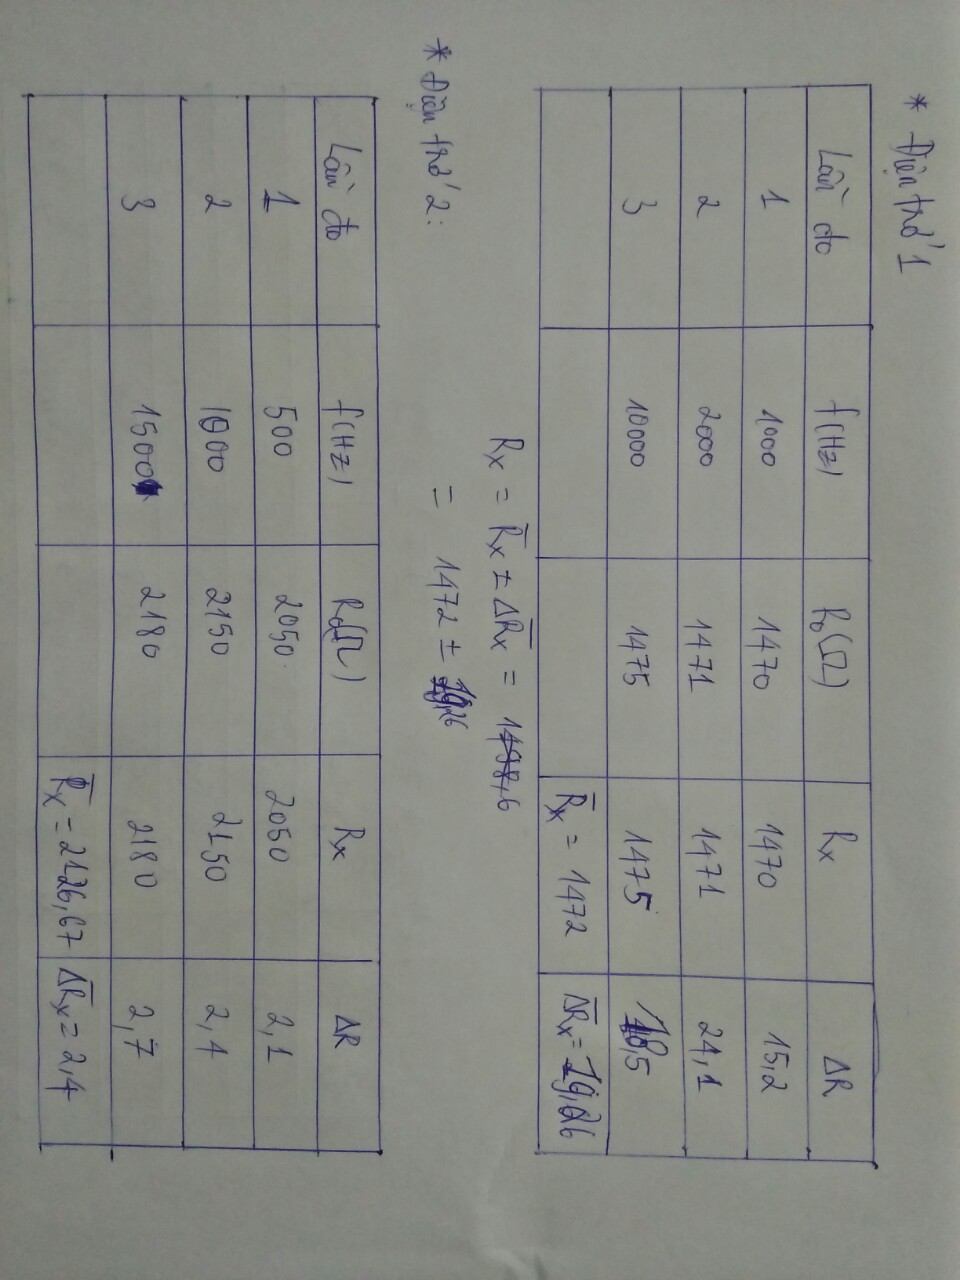 * Điện trở 1
Lần đo f(Hz) R₀(Ω) Rx ΔR
1 1000 1470 1470 15,2
2 2000 1471 1471 24,1
3 10000 1475 1475 18,5
R̅x = 1472 Δ̅R̅x = 19,26
Rx = R̅x ± Δ̅R̅x =
= 1472 ± 19,26
* Điện trở 2:
Lần đo f(Hz) R₀(Ω) Rx ΔR
1 500 2050 2050 2,1
2 1000 2150 2150 2,4
3 1500 2180 2180 2,7
R̅x = 2126,67 Δ̅R̅x = 2,4